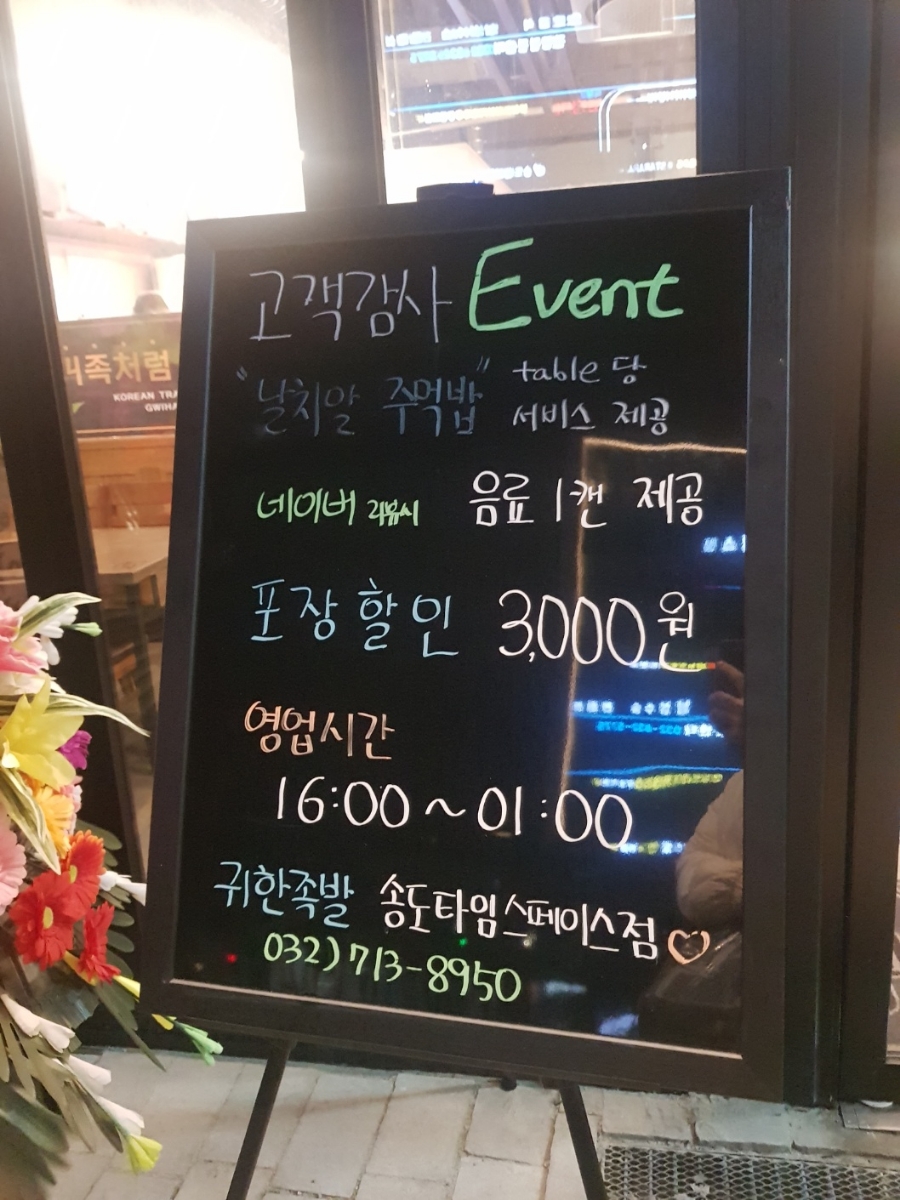 고객감사 Event
"날치알 주먹밥" table 당
서비스 제공
네이버 리뷰시 음료 1캔 제공
포장할인 3,000원
영업시간
16:00~01:00
귀한족발 송도타임스페이스점♡
032)713-8950
족처럼
KOREAN TRA
GWIHA